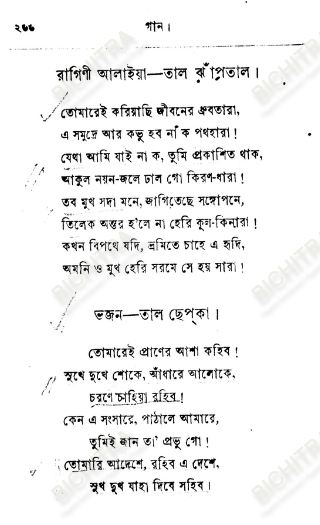 ২৬৬ গান।
রাগিণী আলাইয়া—তাল ঝাঁপতাল।
তোমারেই করিয়াছি জীবনের ধ্রুবতারা,
এ সমুদ্রে আর কভু হব না ক পথহারা!
যেথা আমি যাই না ক, তুমি প্রকাশিত থাক,
আকুল নয়ন-জলে ঢাল গো কিরণ-ধারা!
তব মুখ সদা মনে, জাগিতেছে সঙ্গোপনে,
তিলেক অন্তর হ'লে না হেরি কূল-কিনারা!
কখন বিপথে যদি, ভ্রমিতে চাহে এ হৃদি,
অমনি ও মুখ হেরি সরমে সে হয় সারা!
ভজন—তাল ছেপ্‌কা।
তোমারেই প্রাণের আশা কহিব!
সুখে দুখে শোকে, আঁধারে আলোকে,
চরণে চাহিয়া রহিব!
কেন এ সংসারে, পাঠালে আমারে,
তুমিই জান তা' প্রভু গো!
তোমারি আদেশে, রহিব এ দেশে,
সুখ দুখ যাহা দিবে সহিব।
BICHITRA